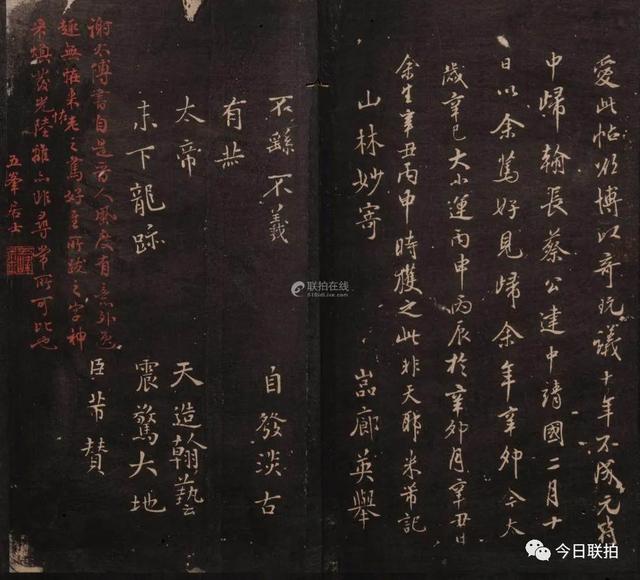 愛此帖欲博以奇玩議十年不成元符
中歸翰長蔡公建中靖國二月十
日以余篤好見歸余年辛卯今太
歲辛巳大小運丙申丙辰於辛卯月辛丑日
余生辛丑丙申時獲之此非天耶米芾記
山林妙寄 巖廊英舉
不繇不羲 自發淡古
有
太帝 天造翰藝
末下龍跡 震驚大地
臣芾贊
謝太傅書自是晉人風度有意外逸
趣無怪米老之篤好至所跋之字神
采煥發光陸離亦非尋常所可比也
五峯居士
联拍在线
518idlive.com
今日联拍